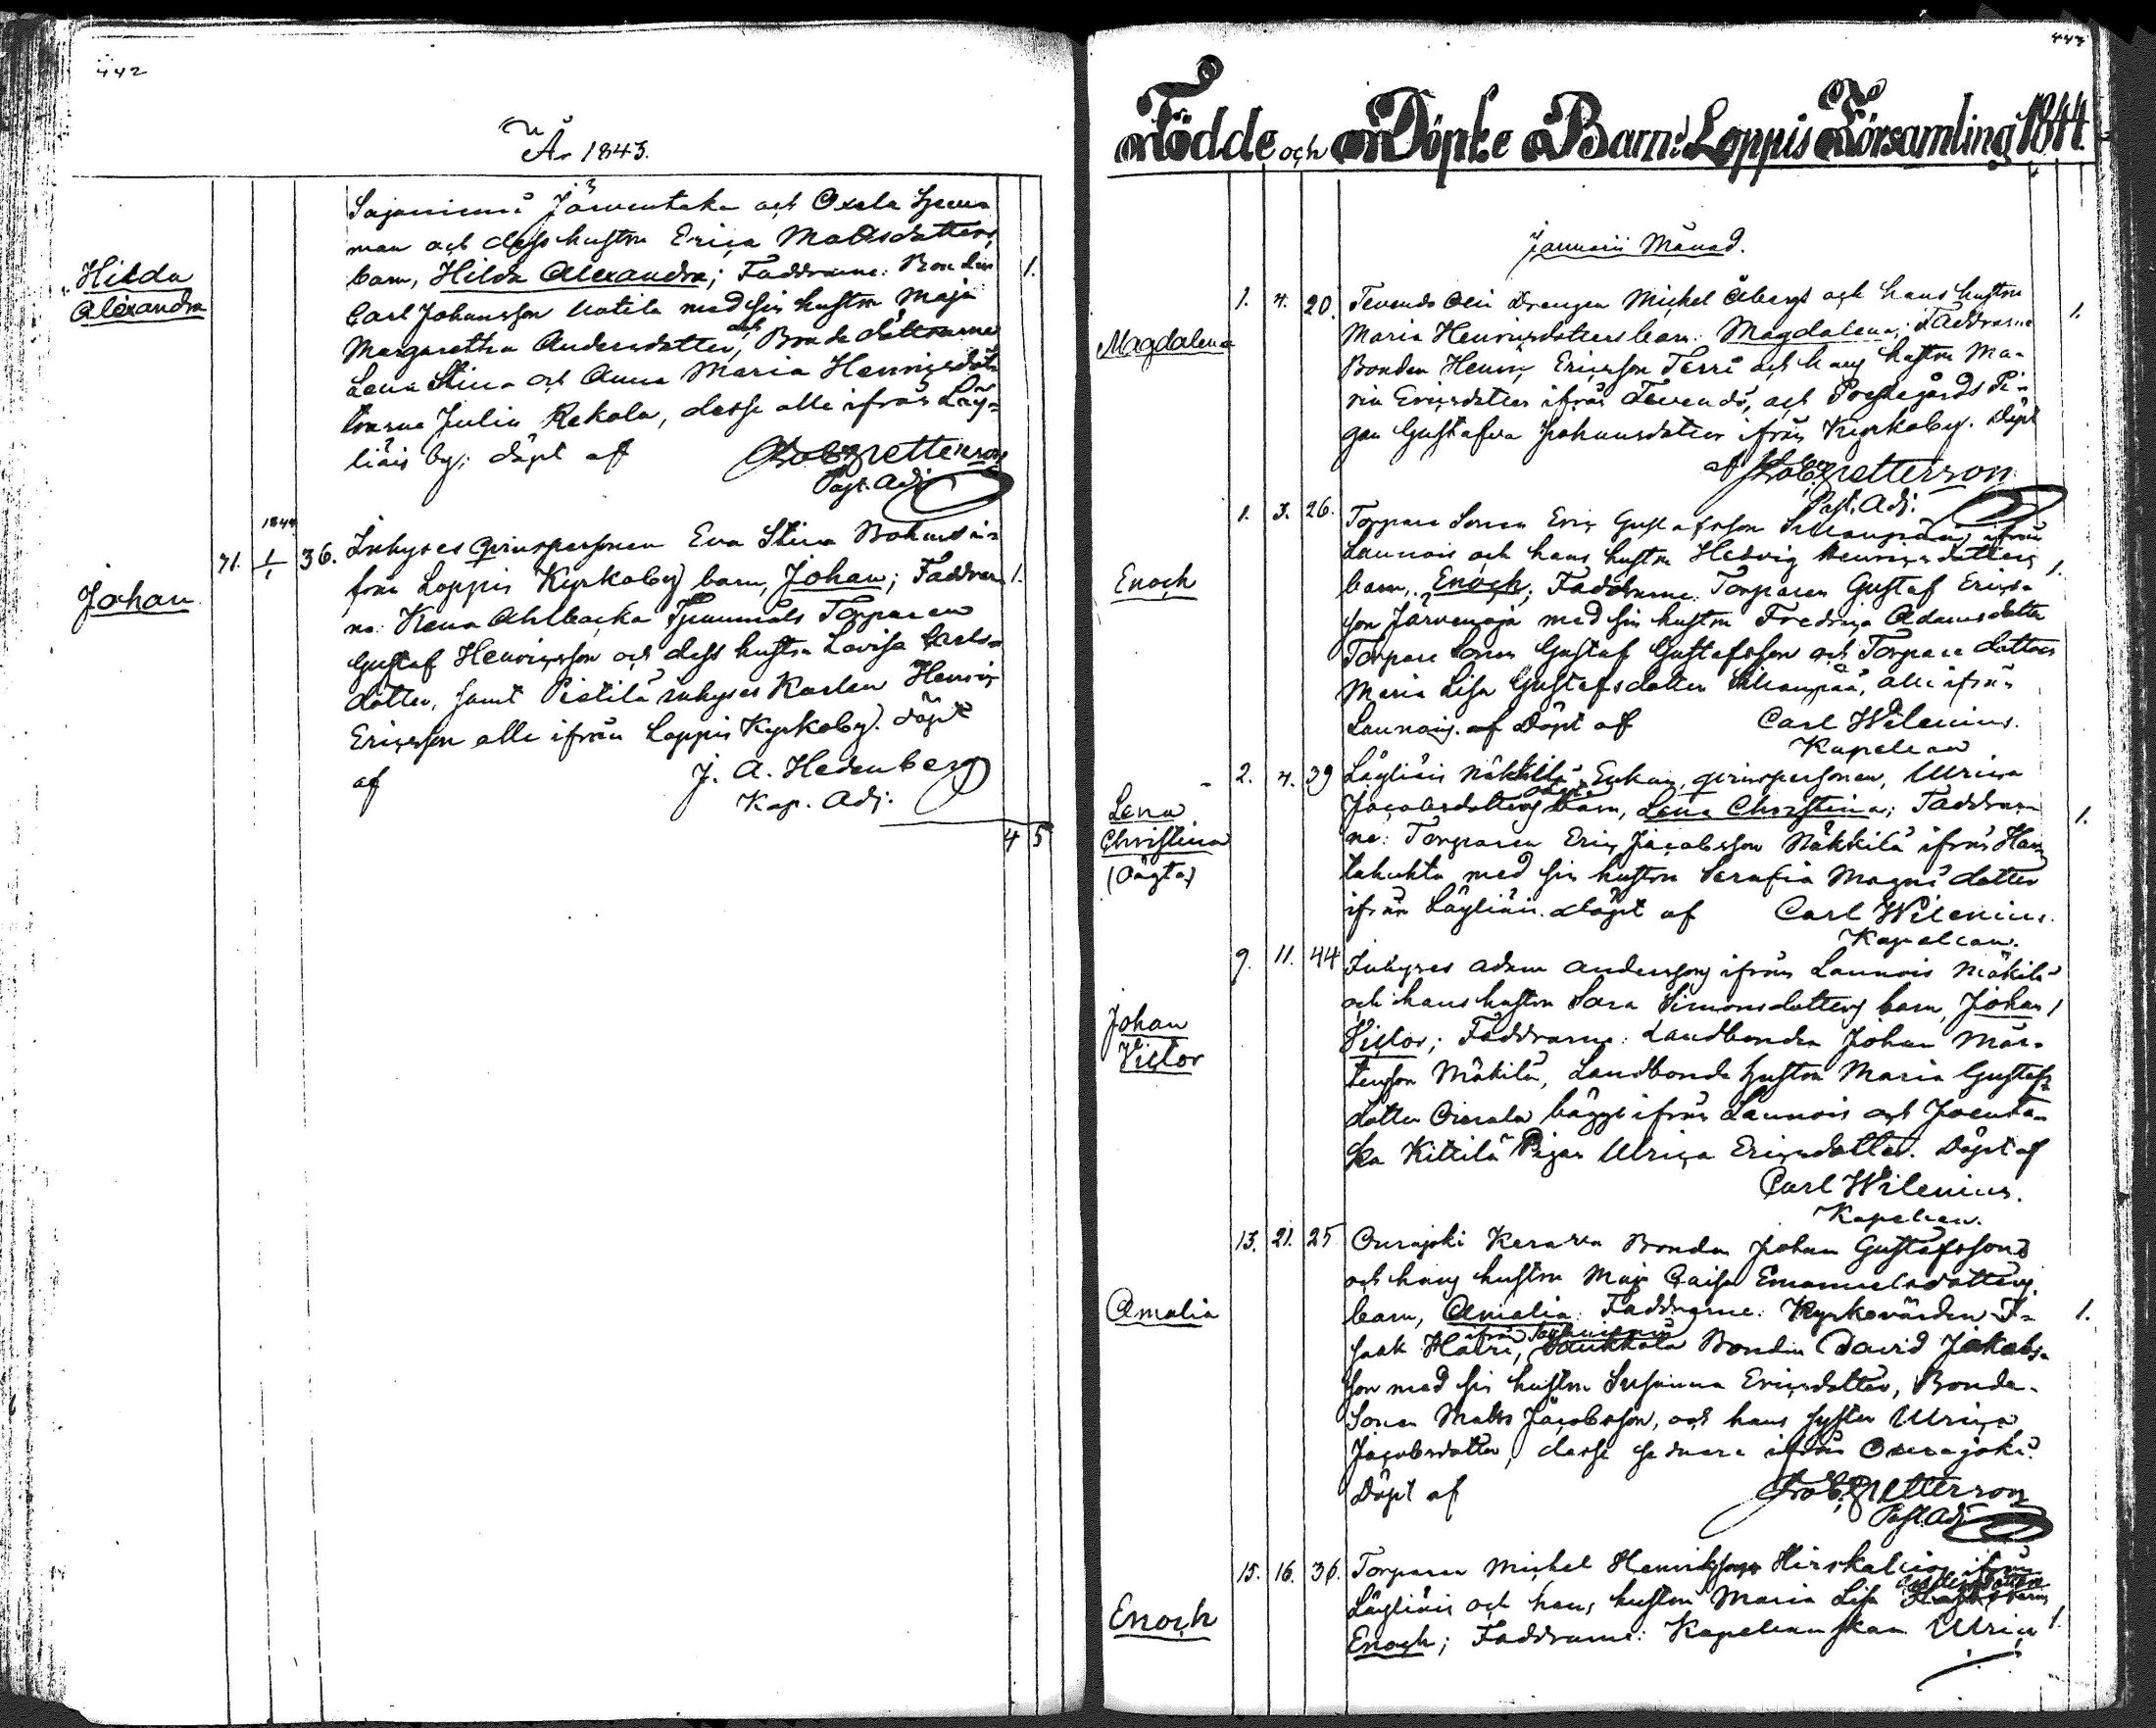 442
År 1843.
Sajaniemi Järventaka och Oxala
man och dess hustru Erica Matsdotters
Hilda
Alexandra
barn, Hilda Alexandra; Faddrarne: Bonden 1.
Carl Johansson Uotila med sin hustru Maja
Margaretha Andersdotter, och Bonde döttrarne
Lena Stina och Anna Maria Henricsdöt-
trarne Julin Rekola, desse alle ifrån Läy-
liäis by; döpt af petterson
Past. Adj.
Johan
71. 1844 1/1 36. Inhyses qvinspersonen Eva Stina Bohms i-
från Loppis Kyrkoby barn, Johan; Faddrar- 1.
ne: Kena Ahlbacka Torparen
Gustaf Henricsson och dess hustru Lovisa Carls-
dotter, samt Pietilä inhyses Karlen Henric
Ericsson alle ifrån Loppis Kyrkoby. döpt
af J. A. Hedenberg
Kap. Adj.
4 5
443
Födde och Döpte Barn i Loppis Församling 1844
Januarii Månad.
Magdalena
1. 4. 20. Tevends Drengen Michel och hans hustru 1.
Maria Henricsdotters barn: Magdalena; Faddrarne
Bonden Henric Ericsson Terri och hans hustru Ma-
ria Ericsdotter ifrån Tevendö, och Prestegårds Pi-
gan Gustafva Johansdotter ifrån Kyrkoby. Döpt
af petterson
Past. Adj.
Enoch
1. 3. 26. Torpare Sonen Eric Gustafsson ifrån
Launois och hans hustru Hedvig Henricsdotters
barn, Enoch; Faddrarne: Torparen Gustaf Erics- 1.
son Järvenoja med sin hustru Fredrica Adamsdotter
Torpare Sonen Gustaf Gustafsson och Torpare dottren
Maria Lisa Gustafsdotter alle ifrån
Launois. af Döpt af Carl Wilenius.
Kapellan
Lena
Christina
(Oägta)
2. 4. 39 Läyliäis Näkkilä Enkan, qvinspersonen, Ulrica
Jacobsdotters oägta barn, Lena Christina; Faddrar- 1.
ne: Torparen Eric Jacobsson Näkkilä ifrån
med sin hustru Serafia Magnidotter
ifrån Läyliäis. döpt af Carl Wilenius.
Kapellan.
Johan
Victor
9. 11. 44 Inhyses Adam Anderssons ifrån Launois Mäkilä
och hans hustru Sara Simonsdotters barn, Johan 1
Victor; Faddrarne: Landbonden Johan Mår-
tensson Mäkilä, Landbonde hustru Maria Gustafs-
dotter Ojenala bägge ifrån Launois och
Kittilä Pigan Ulrica Ericsdotter. Döpt af
Carl Wilenius.
Kapellan.
Amalia
13. 21. 25 Ourajoki Kerava Bonden Johan Gustafssons
och hans hustru Maja Caisa Emanuelsdotters
barn, Amalia. Faddrarne: Kyrkovärden I- 1.
saak Harri, ifrån Sajaniemi Bonden David Jakobs-
son med sin hustru Susanna Ericsdotter, Bonde-
Sonen Matts Jacobsson, och hans syster Ulrica
Jacobsdotter, desse senare ifrån Ourajoki.
Döpt af petterson
Past. Adj.
Enoch
15. 16. 36. Torparen Michel Henrikssons Hirskaliois ifrån
Läyliäis och hans hustru Maria Lisa barn,
Enoch; Faddrarne: Kapellanskan Ulrica 1.